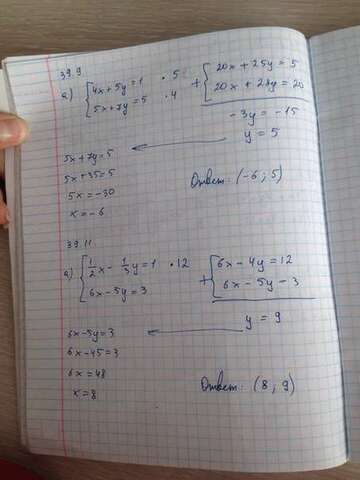 39.9
а) { 4x + 5y = 1 · 5
5x + 7y = 5 · 4
+ { 20x + 25y = 5
20x + 28y = 20
-3y = -15
y = 5
5x + 7y = 5
5x + 35 = 5
5x = -30
x = -6
Ответ: (-6 ; 5)
39.11
а) { 1/2 x - 1/3 y = 1 · 12
6x - 5y = 3
+ { 6x - 4y = 12
6x - 5y - 3
y = 9
6x - 5y = 3
6x - 45 = 3
6x = 48
x = 8
Ответ: (8 ; 9)